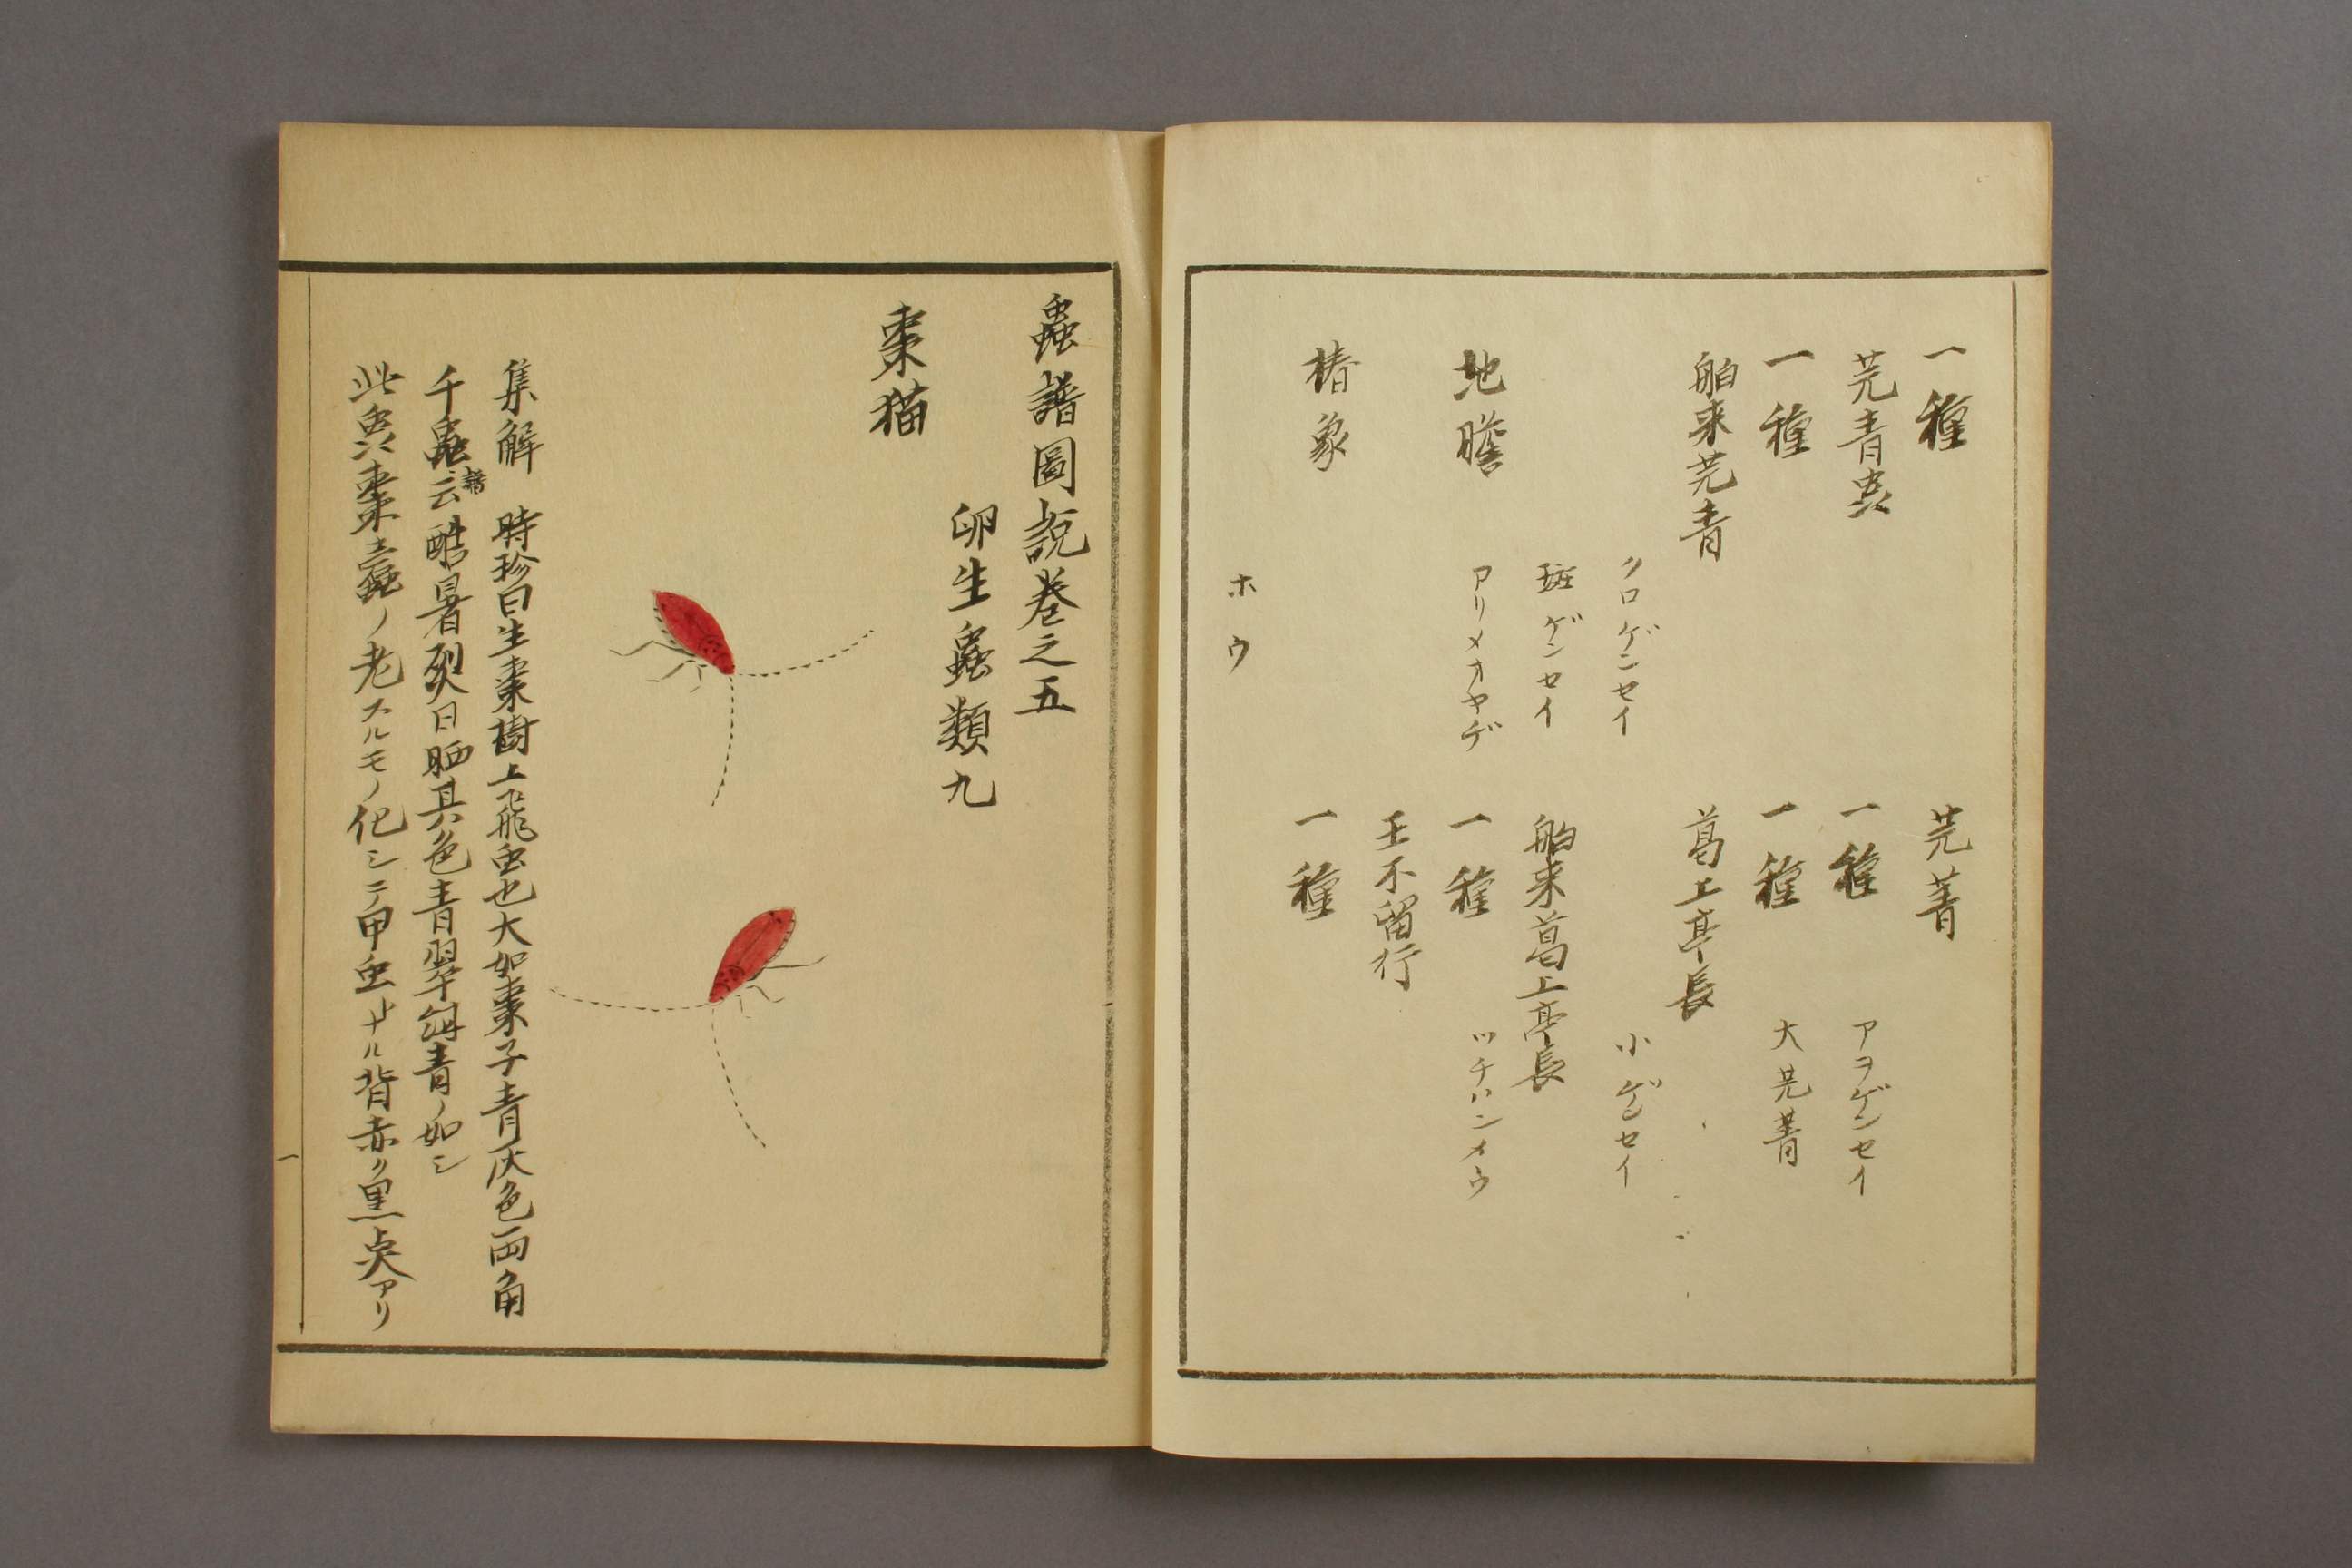 一種 芫菁
芫青虫 一種 アヲゲンセイ
一種 一種 大芫菁
舶来芫青 葛上亭長
クロゲンセイ 小ゲンセイ
斑ゲンセイ 舶来葛上亭長
地膽 アリメオヤヂ 一種 ツチハンメウ
王不留行
椿象 一種
ホウ
蟲譜圖説巻之五
卵生蟲類九
棗猫
集解 時珍曰生棗樹上飛虫也大如棗子青灰色両角
千蟲譜云酷暑烈日晒其色青翠紺青ノ如シ
此虫ハ棗蠹ノ老スルモノ化シテ甲虫トナル背赤ク黒点アリ
一